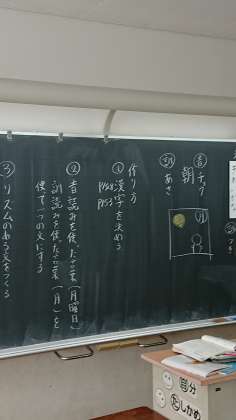 音 チョウ
朝
訓 あさ
月
作り方
① 漢字を決める
P153
② 音読みを使った言葉(月曜日)と
訓読みを使った言葉(月)を
使って一つの文にする
③ リズムのある文をつくる
分
たしかめ